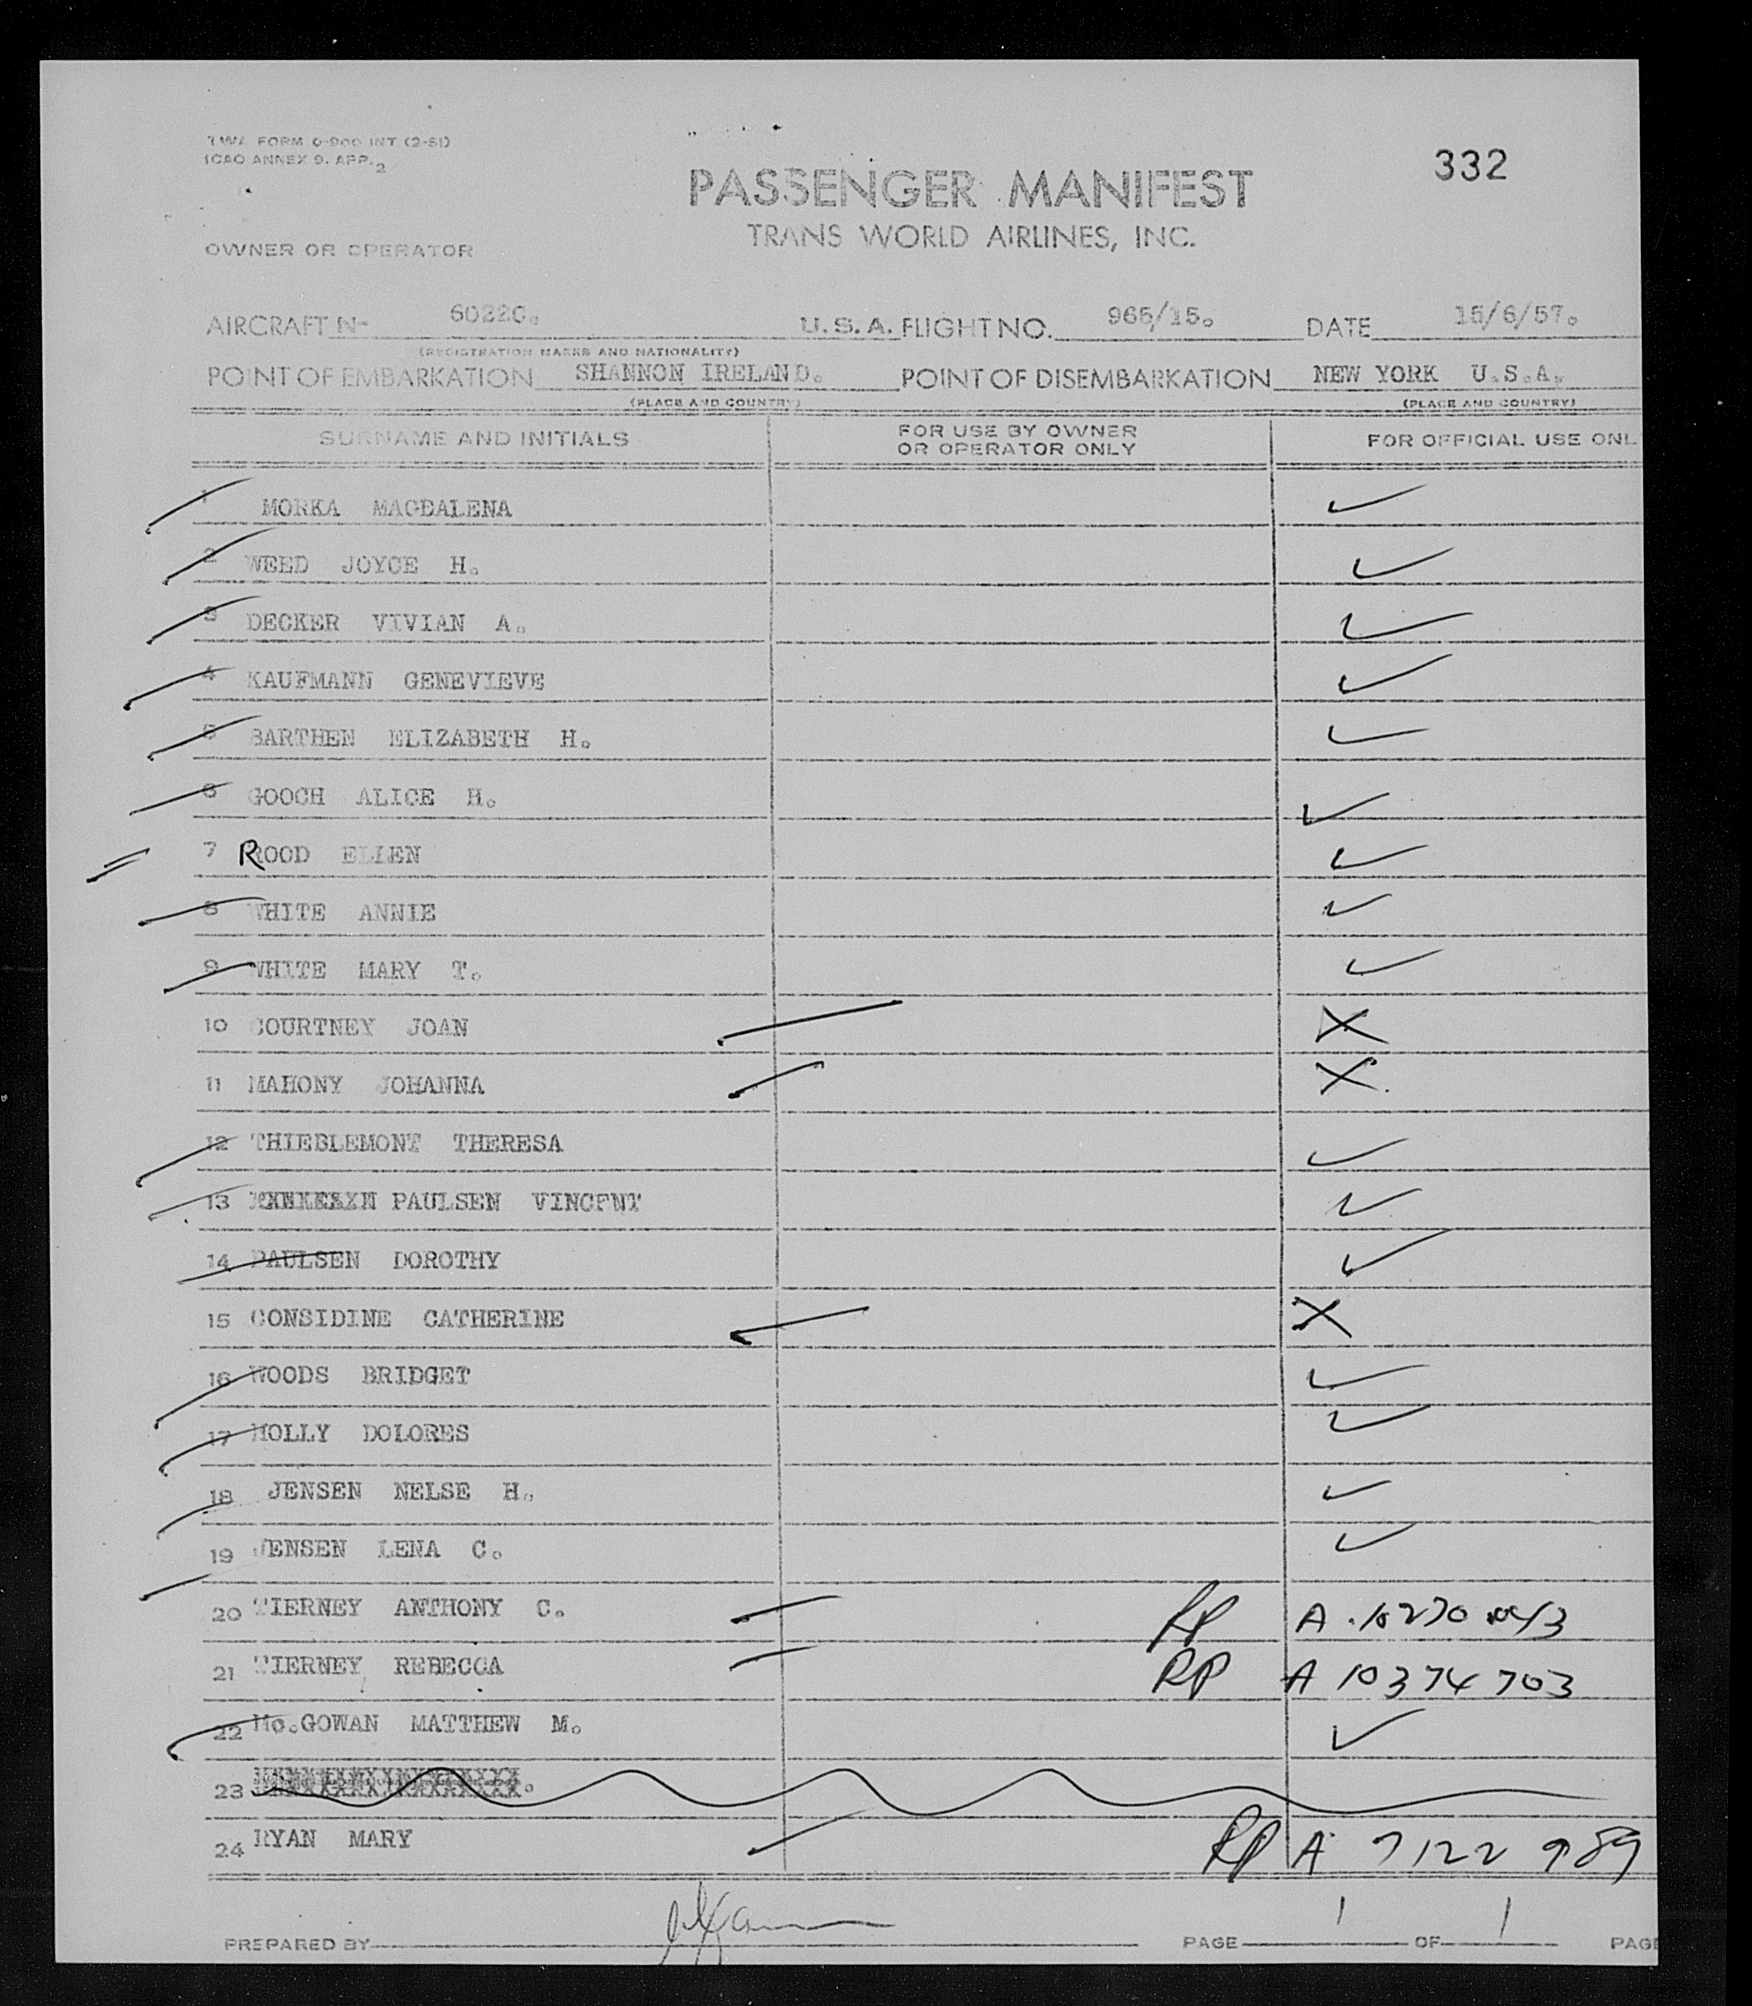 TWA FORM 0-900 INT (2-51)
ICAO ANNEX 9. APP. 2
332
PASSENGER MANIFEST
TRANS WORLD AIRLINES, INC.
OWNER OR OPERATOR
AIRCRAFT N- 6022C. U.S.A. FLIGHT NO. 965/15. DATE 15/6/57.
(REGISTRATION MARKS AND NATIONALITY)
POINT OF EMBARKATION SHANNON IRELAND. POINT OF DISEMBARKATION NEW YORK U.S.A.
(PLACE AND COUNTRY) (PLACE AND COUNTRY)
SURNAME AND INITIALS FOR USE BY OWNER OR OPERATOR ONLY FOR OFFICIAL USE ONL
1 MORKA MAGDALENA ✓
2 WEED JOYCE H. ✓
3 DECKER VIVIAN A. ✓
4 KAUFMANN GENEVIEVE ✓
5 BARTHEN ELIZABETH H. ✓
6 GOOCH ALICE H. ✓
7 ROOD ELLEN ✓
8 WHITE ANNIE ✓
9 WHITE MARY T. ✓
10 COURTNEY JOAN X
11 MAHONY JOHANNA X
12 THIEBLEMONT THERESA ✓
13 PAULSEN VINCENT ✓
14 PAULSEN DOROTHY ✓
15 CONSIDINE CATHERINE X
16 WOODS BRIDGET ✓
17 HOLLY DOLORES ✓
18 JENSEN NELSE H. ✓
19 JENSEN LENA C. ✓
20 TIERNEY ANTHONY C. RP A
21 TIERNEY REBECCA RP A 10374703
22 Mc.GOWAN MATTHEW M. ✓
23
24 RYAN MARY RP A 7122 989
PREPARED BY PAGE 1 OF 1 PAG